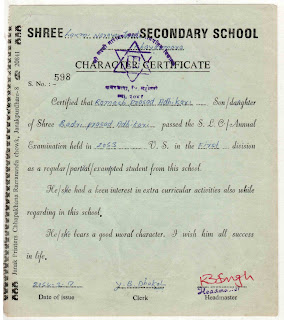 SHREE SECONDARY SCHOOL
CHARACTER CERTIFICATE
S. No. : 598
Certified that Ramesh prasad Adhikari Son/daughter
of Shree Badri prasad Adhikari passed the S. L. C/Annual
Examination held in 2053 V. S. in the First division
as a regular/partid/exempted student from this school.
He/she had a keen interest in extra curricular activities also while
regarding in this school.
He/she bears a good moral character. I wish him all success
in life.
Date of issue
Clerk
Headmaster